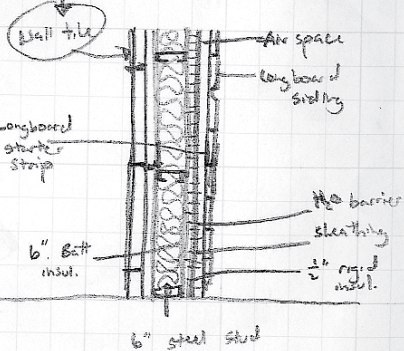 Wall tile
Air space
Longboard
siding
Longboard
starter
strip
H2O barrier
sheathing
6" Batt
insul.
1/2" rigid
insul.
6" steel stud